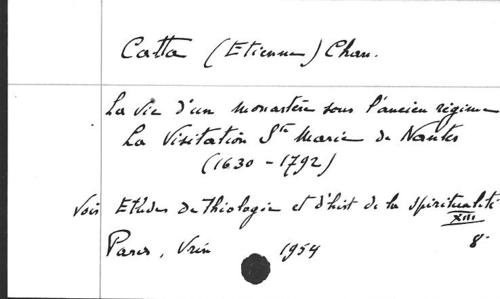 Catta (Etienne) Chan.
La Vie d'un monastère sous l'ancien régime
La Visitation Ste Marie de Nantes
(1630 - 1792)
Voir Etudes de théologie et d'hist de la spiritualité
XIII
Paris, Vrin 1954 8°